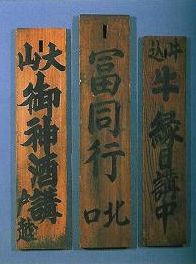 牛込
牛縁日講中
冨同行
北口
大山
御神酒講
戸越